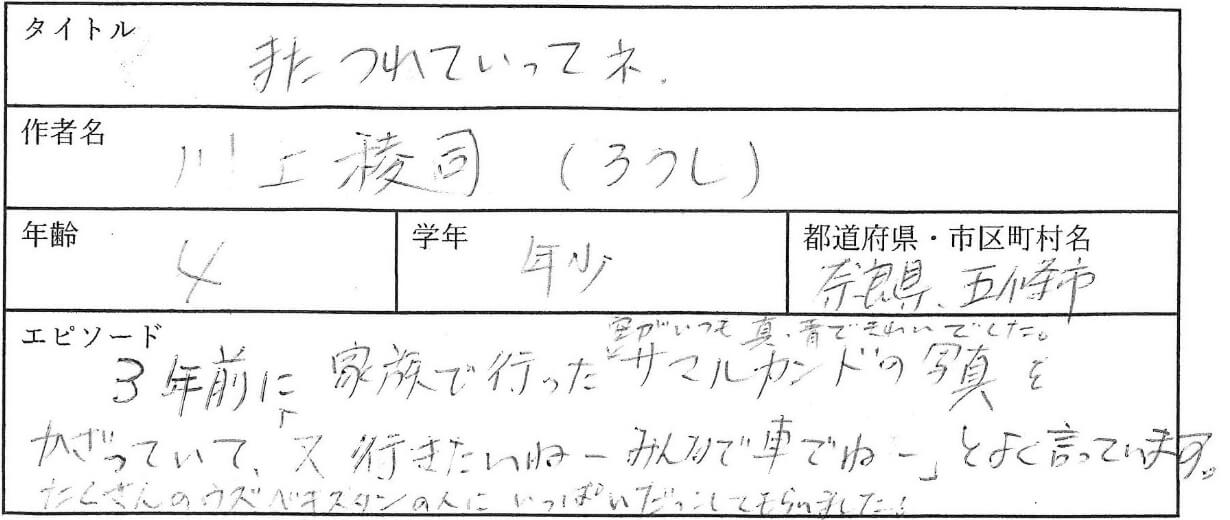 タイトル
またつれていってネ.
作者名
川上稜司 (ろうし)
年齢
4
学年
年少
都道府県・市区町村名
奈良県、五條市
エピソード
空がいつも真、青できれいでした。
3年前に家族で行ったサマルカンドの写真を
かざっていて、「又行きたいねーみんなで車でねー」とよく言っています。
たくさんのウズベキスタンの人にいっぱいだっこしてもらいました!